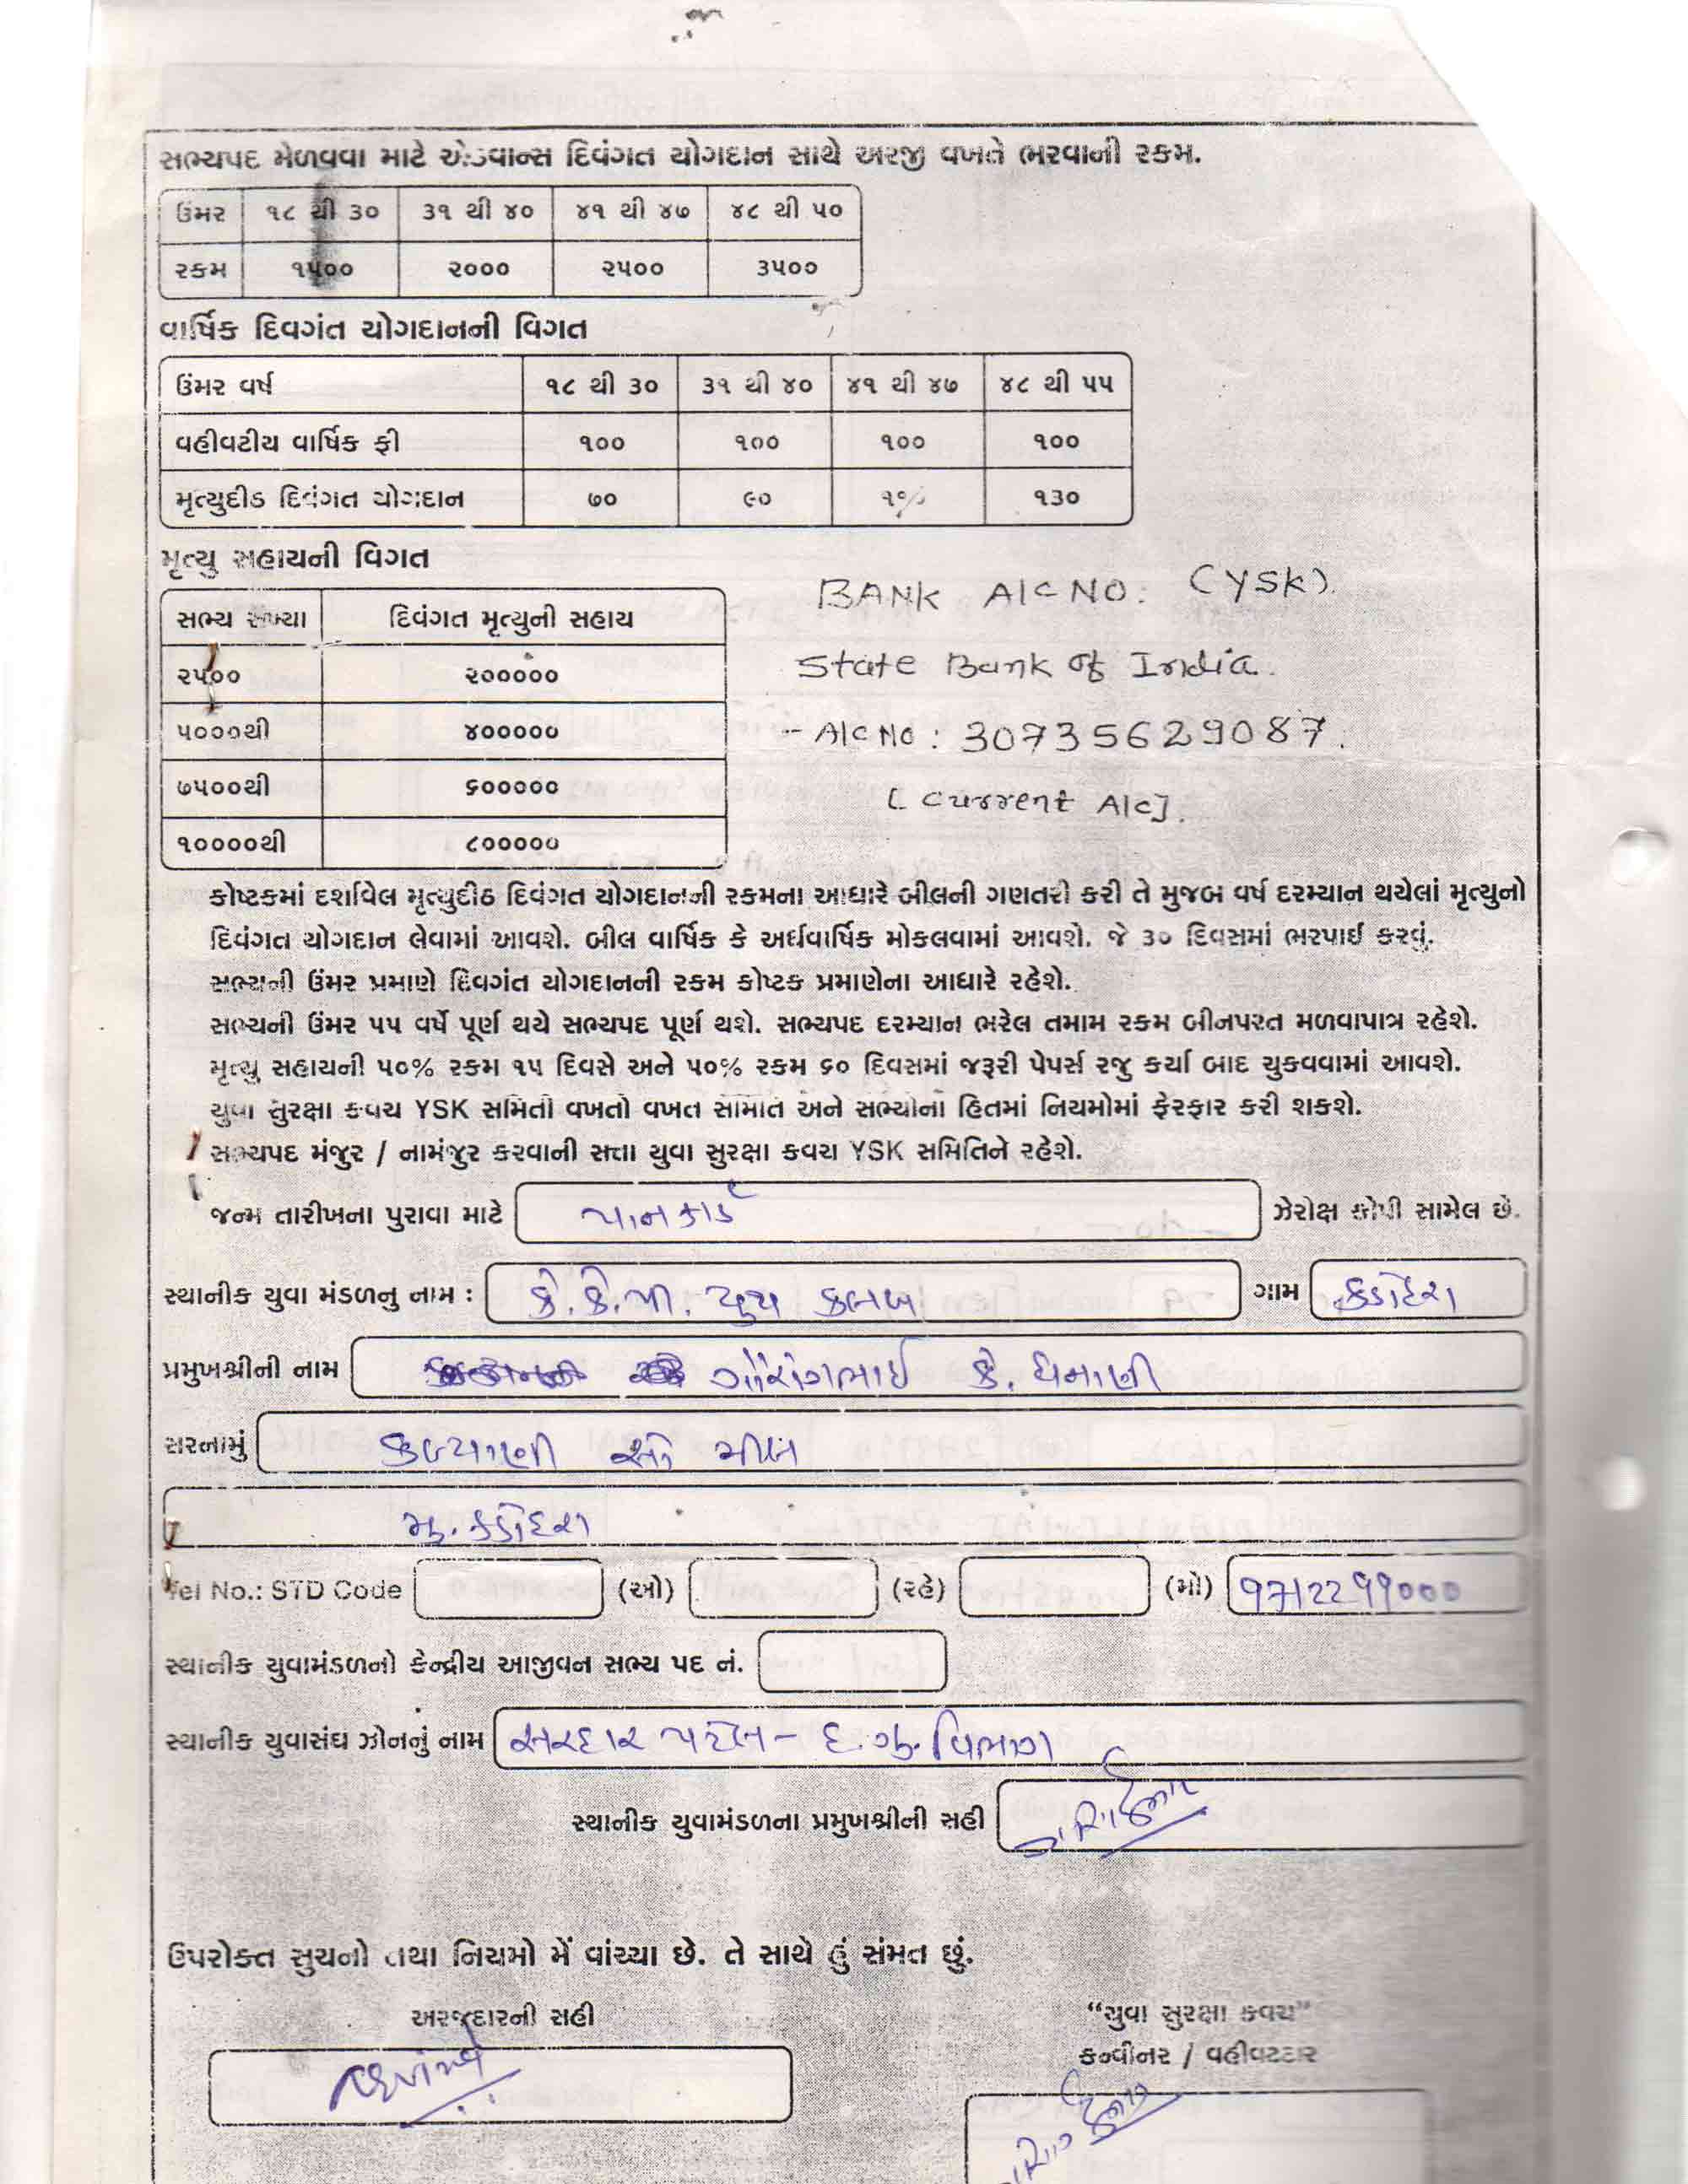 સભ્યપદ મેળવવા માટે એડવાન્સ દિવંગત યોગદાન સાથે અરજી વખતે ભરવાની રકમ.
ઉંમર ૧૮ થી ૩૦ ૩૧ થી ૪૦ ૪૧ થી ૪૭ ૪૮ થી ૫૦
રકમ ૧૫૦૦ ૨૦૦૦ ૨૫૦૦ ૩૫૦૦
વાર્ષિક દિવગંત યોગદાનની વિગત
ઉંમર વર્ષ ૧૮ થી ૩૦ ૩૧ થી ૪૦ ૪૧ થી ૪૭ ૪૮ થી ૫૫
વહીવટીય વાર્ષિક ફી ૧૦૦ ૧૦૦ ૧૦૦ ૧૦૦
મૃત્યુદીઠ દિવંગત યોગદાન ૭૦ ૯૦ ૧૩૦
મૃત્યુ સહાયની વિગત
સભ્ય સંખ્યા દિવંગત મૃત્યુની સહાય
૨૫૦૦ ૨૦૦૦૦૦
૫૦૦૦થી ૪૦૦૦૦૦
૭૫૦૦થી ૬૦૦૦૦૦
૧૦૦૦૦થી ૮૦૦૦૦૦
BANK A/C NO: (YSK).
State Bank of India.
- A/C No: 30735629087.
[Current A/C].
કોષ્ટકમાં દર્શાવેલ મૃત્યુદીઠ દિવંગત યોગદાનની રકમના આધારે બીલની ગણતરી કરી તે મુજબ વર્ષ દરમ્યાન થયેલાં મૃત્યુનો
દિવંગત યોગદાન લેવામાં આવશે. બીલ વાર્ષિક કે અર્ધવાર્ષિક મોકલવામાં આવશે. જે ૩૦ દિવસમાં ભરપાઈ કરવું.
સભ્યની ઉંમર પ્રમાણે દિવગંત યોગદાનની રકમ કોષ્ટક પ્રમાણેના આધારે રહેશે.
સભ્યની ઉંમર ૫૫ વર્ષે પૂર્ણ થયે સભ્યપદ પૂર્ણ થશે. સભ્યપદ દરમ્યાન ભરેલ તમામ રકમ બીનપરત મળવાપાત્ર રહેશે.
મૃત્યુ સહાયની ૫૦% રકમ ૧૫ દિવસે અને ૫૦% રકમ ૬૦ દિવસમાં જરૂરી પેપર્સ રજુ કર્યા બાદ ચુકવવામાં આવશે.
યુવા સુરક્ષા કવચ YSK સમિતી વખતો વખત સમિતિ અને સભ્યોના હિતમાં નિયમોમાં ફેરફાર કરી શકશે.
સભ્યપદ મંજુર / નામંજુર કરવાની સત્તા યુવા સુરક્ષા કવચ YSK સમિતિને રહેશે.
જન્મ તારીખના પુરાવા માટે પાનકાર્ડ ઝેરોક્ષ કોપી સામેલ છે.
સ્થાનીક યુવા મંડળનુ નામ : કે.કે.પી. યુથ કલબ ગામ કડોદરા
પ્રમુખશ્રીની નામ ગૌરાંગભાઈ કે. ધનાણી
સરનામું કલ્યાણી સો મીલ
મુ. કડોદરા
Tel No.: STD Code (ઓ) (રહે) (મો) 9712299000
સ્થાનીક યુવામંડળનો કેન્દ્રીય આજીવન સભ્ય પદ નં.
સ્થાનીક યુવાસંઘ ઝોનનું નામ સરદાર પટેલ - દ.ગુ. વિભાગ
સ્થાનીક યુવામંડળના પ્રમુખશ્રીની સહી
ઉપરોક્ત સુચનો તથા નિયમો મેં વાંચ્યા છે. તે સાથે હું સંમત છું.
અરજદારની સહી
“યુવા સુરક્ષા કવચ”
કન્વીનર / વહીવટદાર